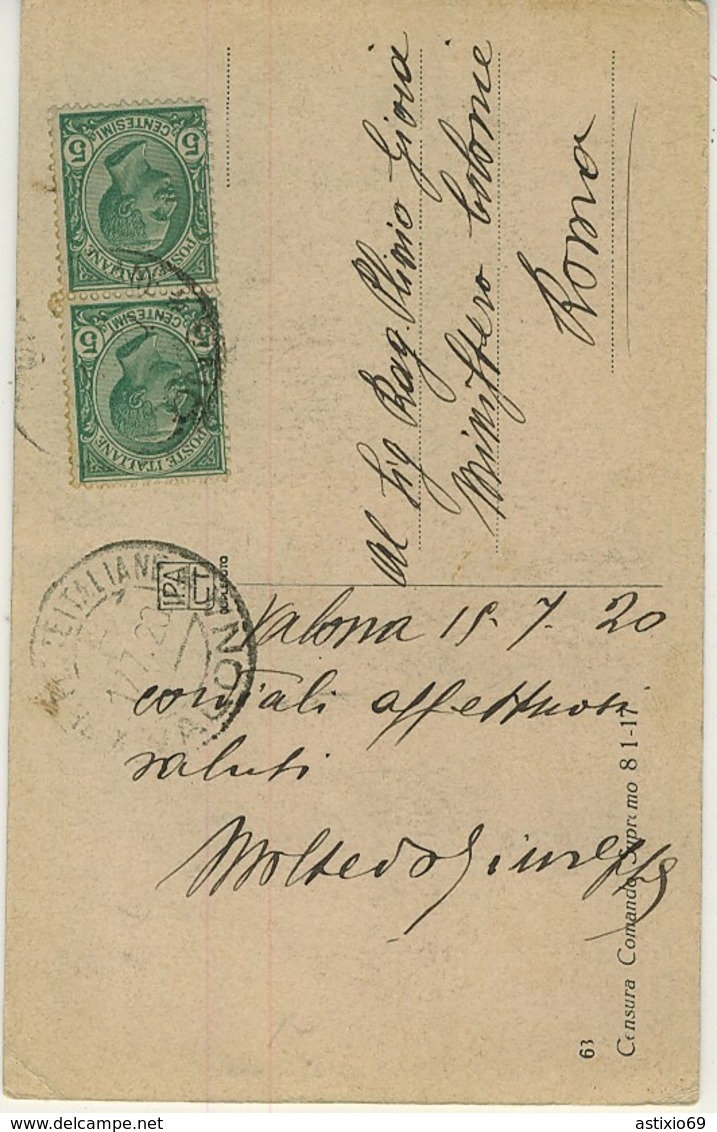 Valona 15. 7. 20
cordiali affettuosi
saluti
Al Sig Rag. Plinio Gioia
Ministero Colonie
Roma
5 CENTESIMI 5
POSTE ITALIANE
5 CENTESIMI 5
POSTE ITALIANE
POSTE ITALIANE
VALONA
IPA
CT
63
Censura Comando Supremo 8 1-17
www.delcampe.net
astixio69